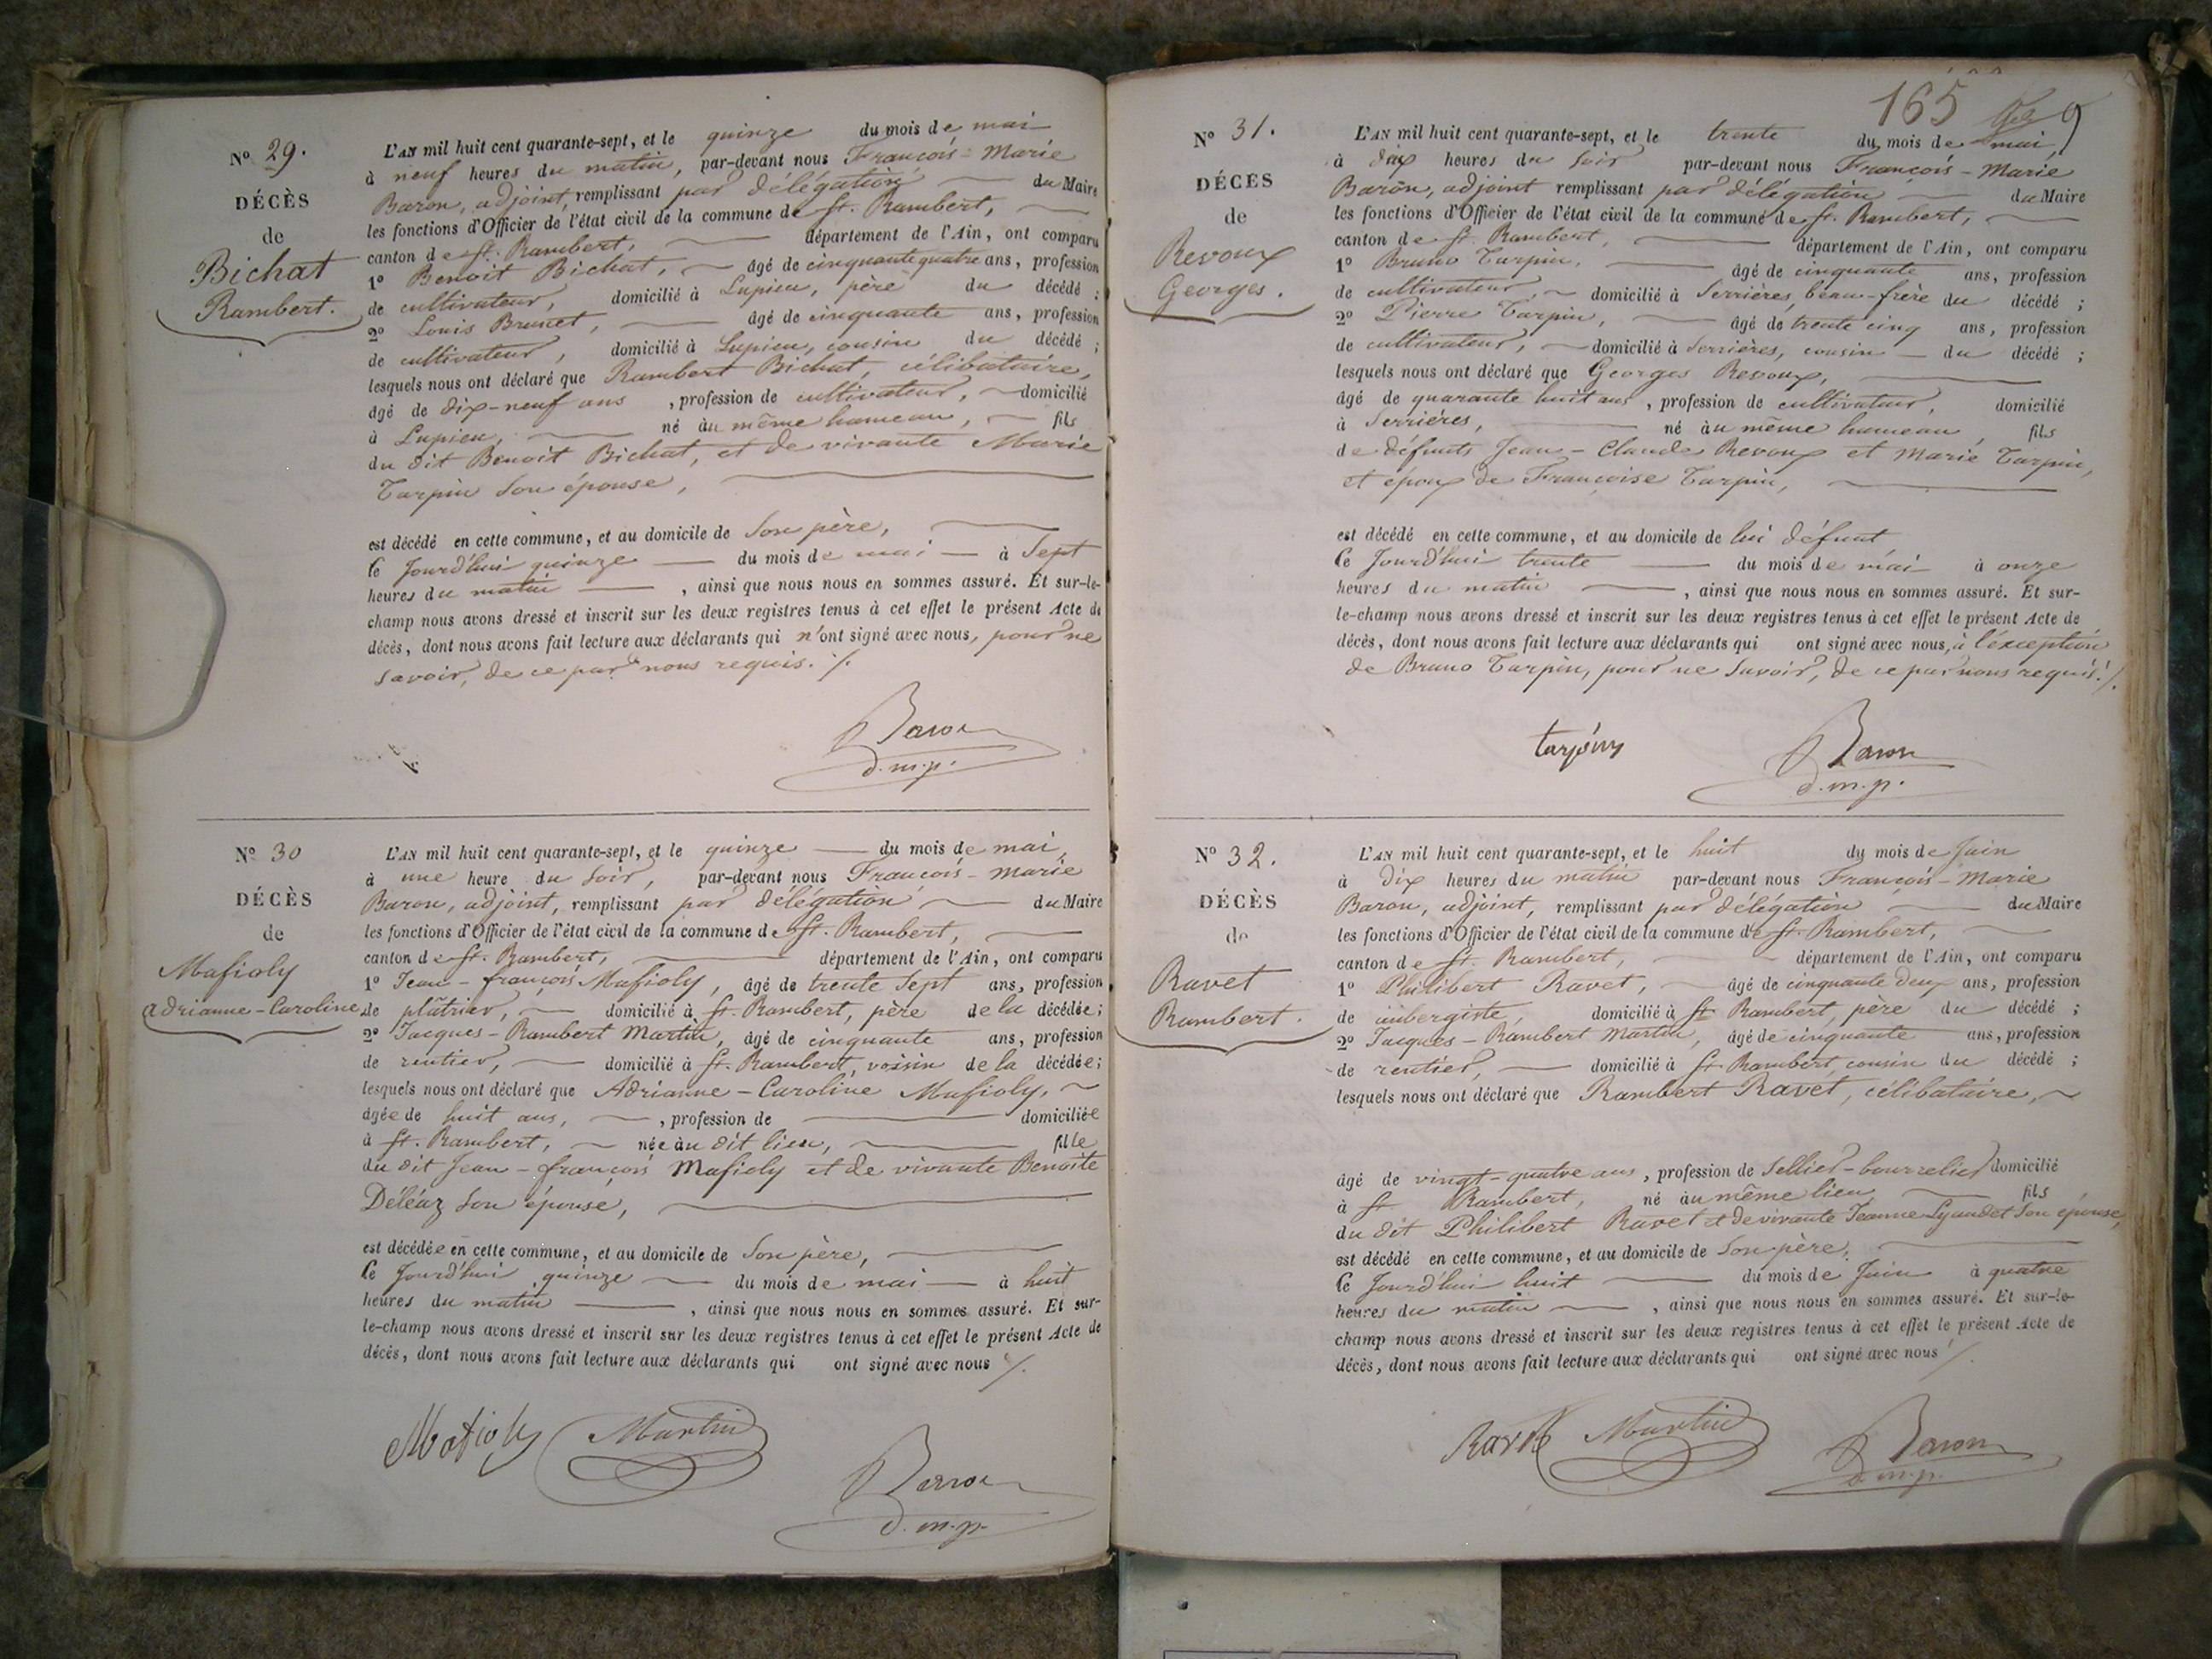 Nº 29.
DÉCÈS
de
Bichat
Rambert.
L'AN mil huit cent quarante-sept, et le quinze du mois de mai
à neuf heures du matin, par-devant nous François-Marie
Baron, adjoint, remplissant par délégation du Maire
les fonctions d'Officier de l'état civil de la commune de St. Rambert,
canton de St. Rambert, département de l'Ain, ont comparu
1º Benoit Bichat, âgé de cinquante quatre ans, profession
de cultivateur, domicilié à Lupieu, père du décédé ;
2º Louis Brunet, âgé de cinquante ans, profession
de cultivateur, domicilié à Lupieu, cousin du décédé ;
lesquels nous ont déclaré que Rambert Bichat, célibataire,
âgé de dix-neuf ans, profession de cultivateur, domicilié
à Lupieu, né au même hameau, fils
du dit Benoit Bichat, et de vivante Marie
Tarpin son épouse,
est décédé en cette commune, et au domicile de son père,
le jourd'hui quinze du mois de mai à sept
heures du matin, ainsi que nous nous en sommes assuré. Et sur-le-
champ nous avons dressé et inscrit sur les deux registres tenus à cet effet le présent Acte de
décès, dont nous avons fait lecture aux déclarants qui n'ont signé avec nous, pour ne
savoir, de ce par nous requis. /.
Baron
d.m.p.
Nº 30
DÉCÈS
de
Mafioly
adrianne-Caroline
L'AN mil huit cent quarante-sept, et le quinze du mois de mai,
à une heure du soir, par-devant nous François-Marie
Baron, adjoint, remplissant par délégation du Maire
les fonctions d'Officier de l'état civil de la commune de St. Rambert,
canton de St. Rambert, département de l'Ain, ont comparu
1º Jean-françois Mafioly, âgé de trente sept ans, profession
de plâtrier, domicilié à St. Rambert, père de la décédée ;
2º Jacques-Rambert Martin, âgé de cinquante ans, profession
de rentier, domicilié à St. Rambert, voisin de la décédée ;
lesquels nous ont déclaré que Adrianne-Caroline Mafioly,
âgée de huit ans, profession de domiciliée
à St. Rambert, née au dit lieu, fille
du dit Jean-françois Mafioly et de vivante Benoite
Déléaz son épouse,
est décédée en cette commune, et au domicile de son père,
le jourd'hui quinze du mois de mai à huit
heures du matin, ainsi que nous nous en sommes assuré. Et sur-
le-champ nous avons dressé et inscrit sur les deux registres tenus à cet effet le présent Acte de
décès, dont nous avons fait lecture aux déclarants qui ont signé avec nous /.
Mafioly Martin
Baron
d.m.p.
165
Nº 31.
DÉCES
de
Revoux
Georges.
L'AN mil huit cent quarante-sept, et le trente du mois de mai,
à dix heures du soir par-devant nous François-Marie
Baron, adjoint remplissant par délégation du Maire
les fonctions d'Officier de l'état civil de la commune de St. Rambert,
canton de St. Rambert, département de l'Ain, ont comparu
1º Bruno Tarpin, âgé de cinquante ans, profession
de cultivateur, domicilié à Serrières, beau-frère du décédé ;
2º Pierre Tarpin, âgé de trente cinq ans, profession
de cultivateur, domicilié à Serrières, cousin du décédé ;
lesquels nous ont déclaré que Georges Revoux,
âgé de quarante huit ans, profession de cultivateur, domicilié
à Serrières, né au même hameau, fils
de défunts Jean-Claude Revoux et Marie Tarpin,
et époux de Françoise Tarpin,
est décédé en cette commune, et au domicile de lui défunt
le jourd'hui trente du mois de mai à onze
heures du matin, ainsi que nous nous en sommes assuré. Et sur-
le-champ nous avons dressé et inscrit sur les deux registres tenus à cet effet le présent Acte de
décès, dont nous avons fait lecture aux déclarants qui ont signé avec nous, à l'éxception
de Bruno Tarpin, pour ne savoir, de ce par nous requis. /.
tarpin Baron
d.m.p.
Nº 32.
DÉCÈS
de
Ravet
Rambert.
L'AN mil huit cent quarante-sept, et le huit du mois de Juin
à dix heures du matin par-devant nous François-Marie
Baron, adjoint, remplissant par délégation du Maire
les fonctions d'Officier de l'état civil de la commune de St. Rambert,
canton de St. Rambert, département de l'Ain, ont comparu
1º Philibert Ravet, âgé de cinquante deux ans, profession
de aubergiste, domicilié à St Rambert, père du décédé ;
2º Jacques-Rambert Martin, âgé de cinquante ans, profession
de rentier, domicilié à St. Rambert, cousin du décédé ;
lesquels nous ont déclaré que Rambert Ravet, célibataire,
âgé de vingt-quatre ans, profession de sellier-bourrelier domicilié
à St Rambert, né au même lieu, fils
du dit Philibert Ravet et de vivante Jeanne Lyaudet son épouse,
est décédé en cette commune, et au domicile de son père,
le jourd'hui huit du mois de Juin à quatre
heures du matin, ainsi que nous nous en sommes assuré. Et sur-le-
champ nous avons dressé et inscrit sur les deux registres tenus à cet effet le présent Acte de
décès, dont nous avons fait lecture aux déclarants qui ont signé avec nous /.
Martin Baron
d.m.p.